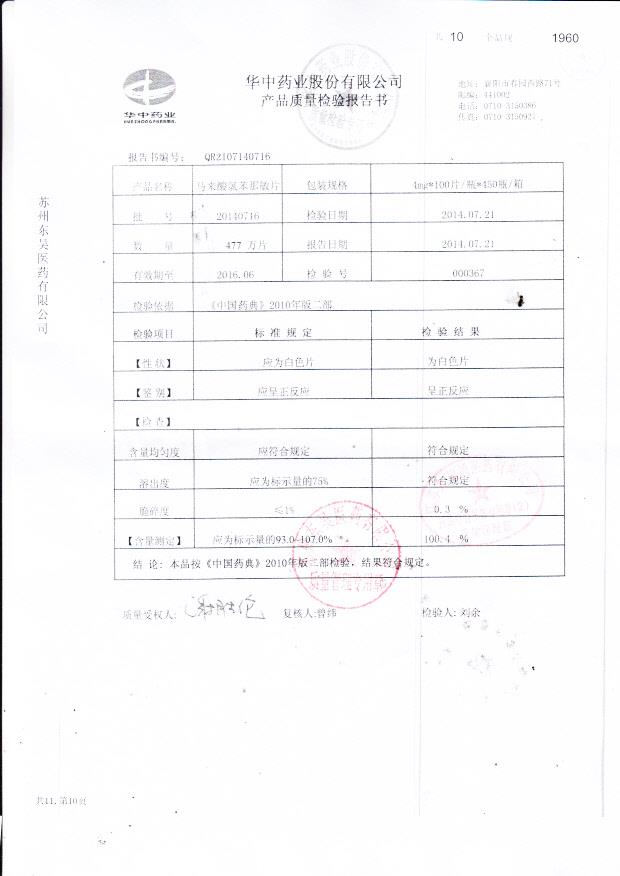 共 10 1960
华中药业
HUAZHONG PHARMA.
华中药业股份有限公司
产品质量检验报告书
地址: 襄阳市春园西路71号
邮编: 441002
电话: 0710-3150386
传真: 0710-3150921
报告书编号: QR2107140716
苏州东吴医药有限公司
产品名称 马来酸氯苯那敏片 包装规格 4mg*100片/瓶*450瓶/箱
批 号 20140716 检验日期 2014.07.21
数 量 477 万片 报告日期 2014.07.21
有效期至 2016.06 检 验 号 000367
检验依据 《中国药典》2010年版二部
检验项目 标 准 规 定 检 验 结 果
【性 状】 应为白色片 为白色片
【鉴 别】 应呈正反应 呈正反应
【检 查】
含量均匀度 应符合规定 符合规定
溶出度 应为标示量的75% 符合规定
脆碎度 ≤1% 0.3 %
【含量测定】 应为标示量的93.0~107.0% 100.4 %
结 论: 本品按《中国药典》2010年版二部检验, 结果符合规定。
质量受权人: 复核人:曾纬 检验人: 刘余
质量管理专用章
共11, 第10页